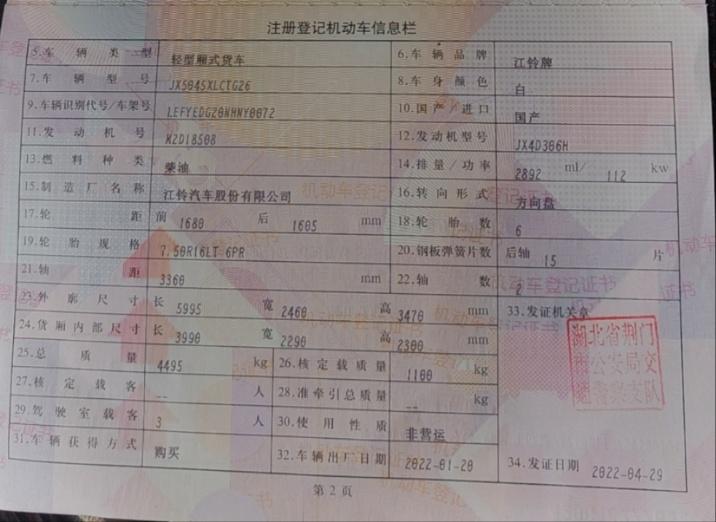 注册登记机动车信息栏
5.车辆类型 轻型厢式货车 6.车辆品牌 江铃牌
7.车辆型号 JX5045XLCTG26 8.车身颜色 白
9.车辆识别代号/车架号 LEFYEDG20NHNY0072 10.国产/进口 国产
11.发动机号 M2D18508 12.发动机型号 JX4D306H
13.燃料种类 柴油 14.排量/功率 2892 ml/ 112 kw
15.制造厂名称 江铃汽车股份有限公司 16.转向形式 方向盘
17.轮距 前 1680 后 1605 mm 18.轮胎数 6
19.轮胎规格 7.50R16LT 6PR 20.钢板弹簧片数 后轴 15 片
21.轴距 3360 mm 22.轴数 2
23.外廓尺寸 长 5995 宽 2460 高 3470 mm 33.发证机关章
24.货厢内部尺寸 长 3990 宽 2290 高 2300 mm
25.总质量 4495 kg 26.核定载质量 1100 kg
27.核定载客 -- 人 28.准牵引总质量 -- kg
29.驾驶室载客 3 人 30.使用性质 非营运
31.车辆获得方式 购买 32.车辆出厂日期 2022-01-20 34.发证日期 2022-04-29
湖北省荆门
市公安局交
第2页